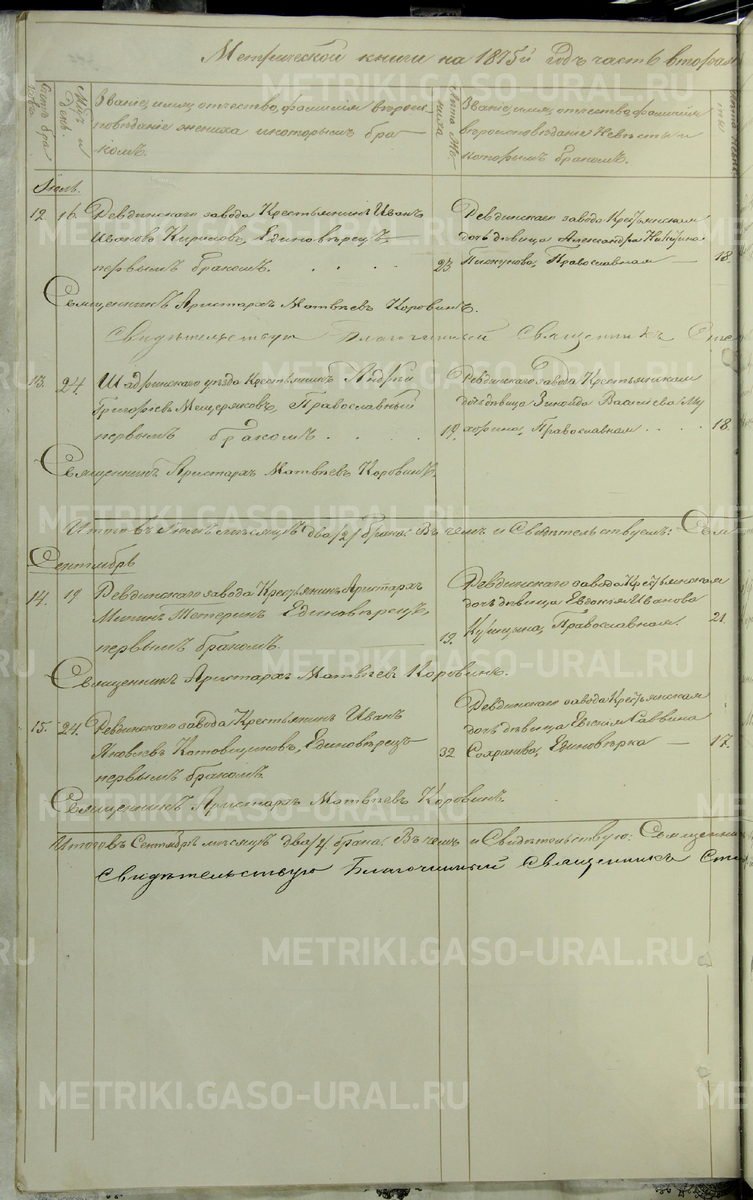 Метрической книги на 1875й годъ часть вторая
Счетъ браковъ
Мѣс. и день.
Званіе, имя, отчество, фамилія, вѣроис-
повѣданіе жениха и которымъ бра-
комъ.
Лѣта Же-
ниха
Званіе, имя, отчество, фамилія
вѣроисповѣданіе Невѣсты и
которымъ бракомъ.
Іюль.
12. 16. Ревдинскаго завода Крестьянинъ Иванъ
Ивановъ Кириловъ, Единовѣрецъ,
первымъ бракомъ. 23
Ревдинскаго завода Крестьянская
дочь дѣвица Александра Никитина
Пискунова, Православная — 18.
Священникъ Аристархъ Матвѣевъ Коровинъ.
Свидѣтельствую Благочинный Священникъ
13. 24. Шадринскаго уѣзда Крестьянинъ Андрей
Григорьевъ Мещеряковъ, Православный
первымъ бракомъ. 19.
Ревдинскаго завода Крестьянская
дочь дѣвица Зинаида Васильева Му
хорина, Православная . . . . 18.
Священникъ Аристархъ Матвѣевъ Коровинъ.
Итого въ Іюлѣ мѣсяцѣ два /2/ брака. Въ чемъ и Свидѣтельствуемъ:
Сентябрь
14. 19 Ревдинскаго завода Крестьянинъ Аристархъ
Мининъ Тетеринъ, Единовѣрецъ,
первымъ бракомъ. 19.
Ревдинскаго завода Крестьянская
дочь дѣвица Евгенья Иванова
Православная. 21.
Священникъ Аристархъ Матвѣевъ Коровинъ.
15. 24. Ревдинскаго завода Крестьянинъ Иванъ
Яковлевъ Катовщиковъ, Единовѣрецъ
первымъ бракомъ. 32
Ревдинскаго завода Крестьянская
дочь дѣвица Евгенія Саввина
Сохранова, Единовѣрка — 17.
Священникъ Аристархъ Матвѣевъ Коровинъ.
Итого въ Сентябрѣ мѣсяцѣ два /2/ брака. Въ чемъ и Свидѣтельствую:
Свидѣтельствую Благочинный Священникъ
METRIKI.GASO-URAL.RU